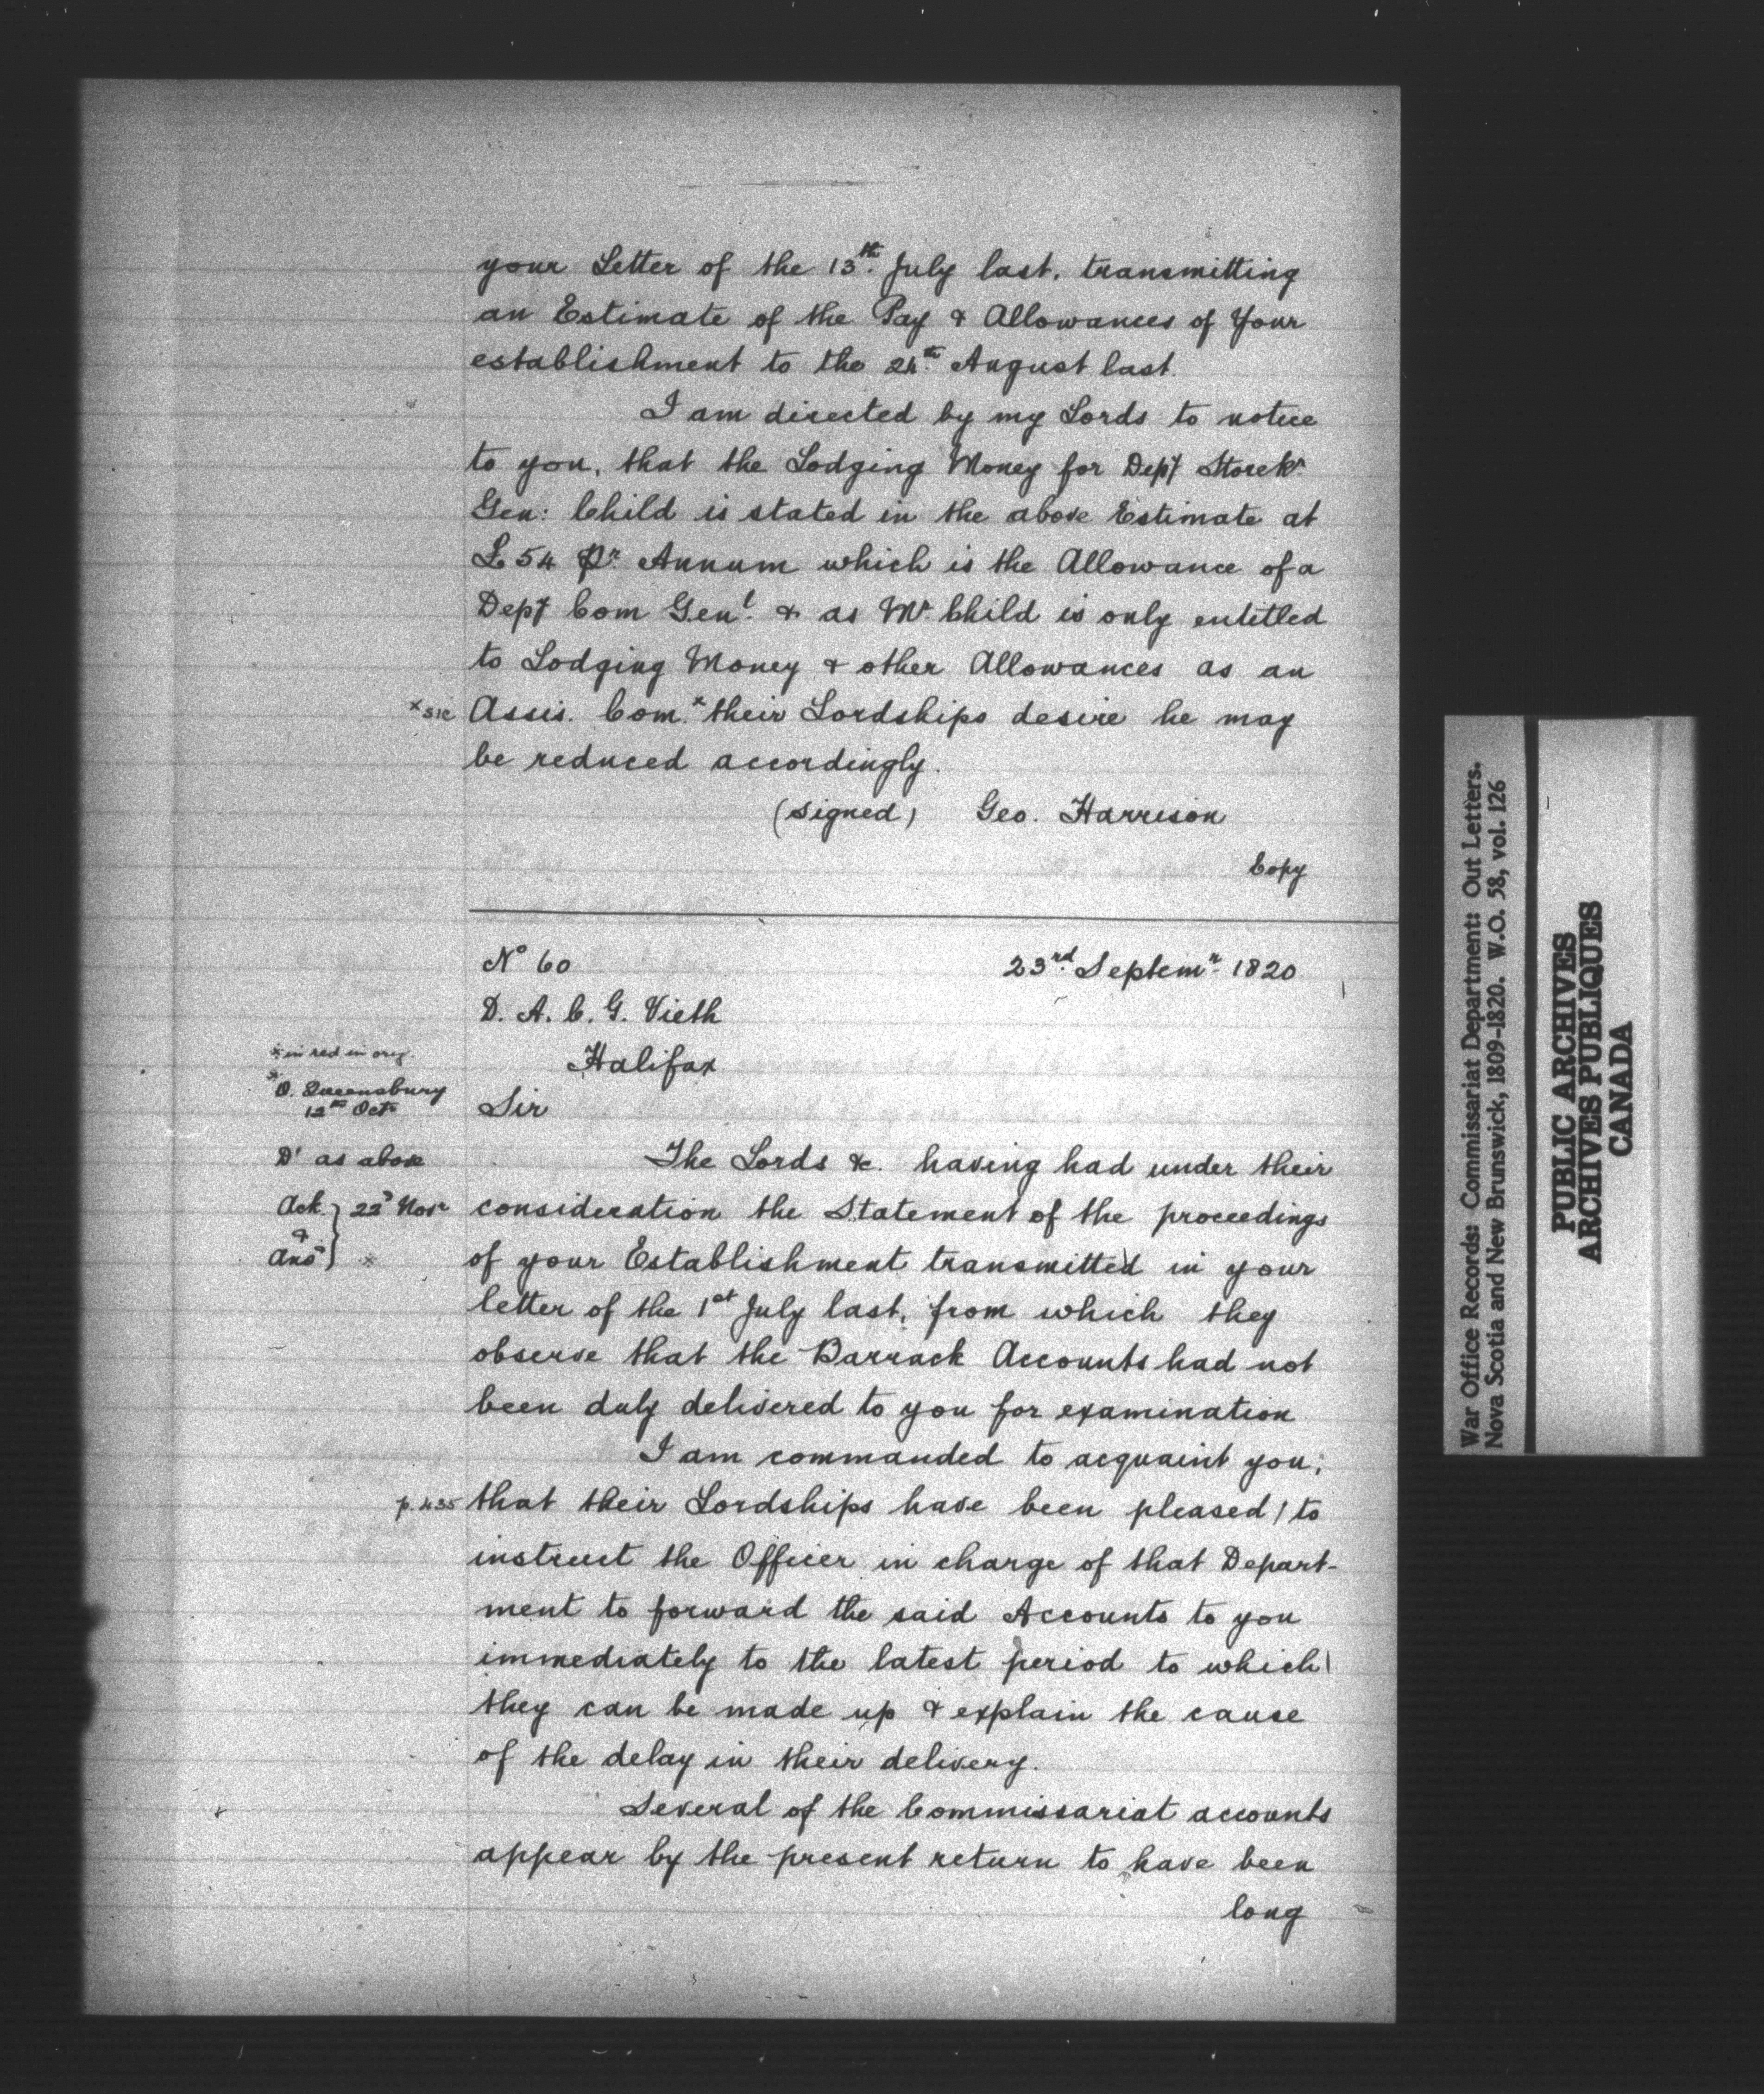 your Letter of the 13th. July last, transmitting
an Estimate of the Pay & Allowances of Your
establishment to the 24th August last.
I am directed by my Lords to notice
to you, that the Lodging Money for Depy Storekr
Gen: Child is stated in the above Estimate at
£54 Pr Annum which is the Allowance of a
Depy Com Genl. & as Mr. Child is only entitled
to Lodging Money & other Allowances as an
x sic Assis. Com.x their Lordships desire he may
be reduced accordingly.
(signed) Geo. Harrison
Copy
No 60 23rd. Septemr. 1820
D. A. C. G. Vieth
Halifax
* in red in orig.
* O. Queensbury
12th Octr
Sir
Do as above
The Lords &c. having had under their
Ack } 22d Novr consideration the Statement of the proceedings
&
Ansd } * of your Establishment transmitted in your
letter of the 1st July last, from which they
observe that the Barrack Accounts had not
been duly delivered to you for examination
I am commanded to acquaint you,
p.435 that their Lordships have been pleased / to
instruct the Officer in charge of that Depart-
ment to forward the said Accounts to you
immediately to the latest period to which
they can be made up & explain the cause
of the delay in their delivery.
Several of the Commissariat accounts
appear by the present return to have been
long
War Office Records: Commissariat Department: Out Letters.
Nova Scotia and New Brunswick, 1809-1820. W.O. 58, vol. 126
PUBLIC ARCHIVES
ARCHIVES PUBLIQUES
CANADA